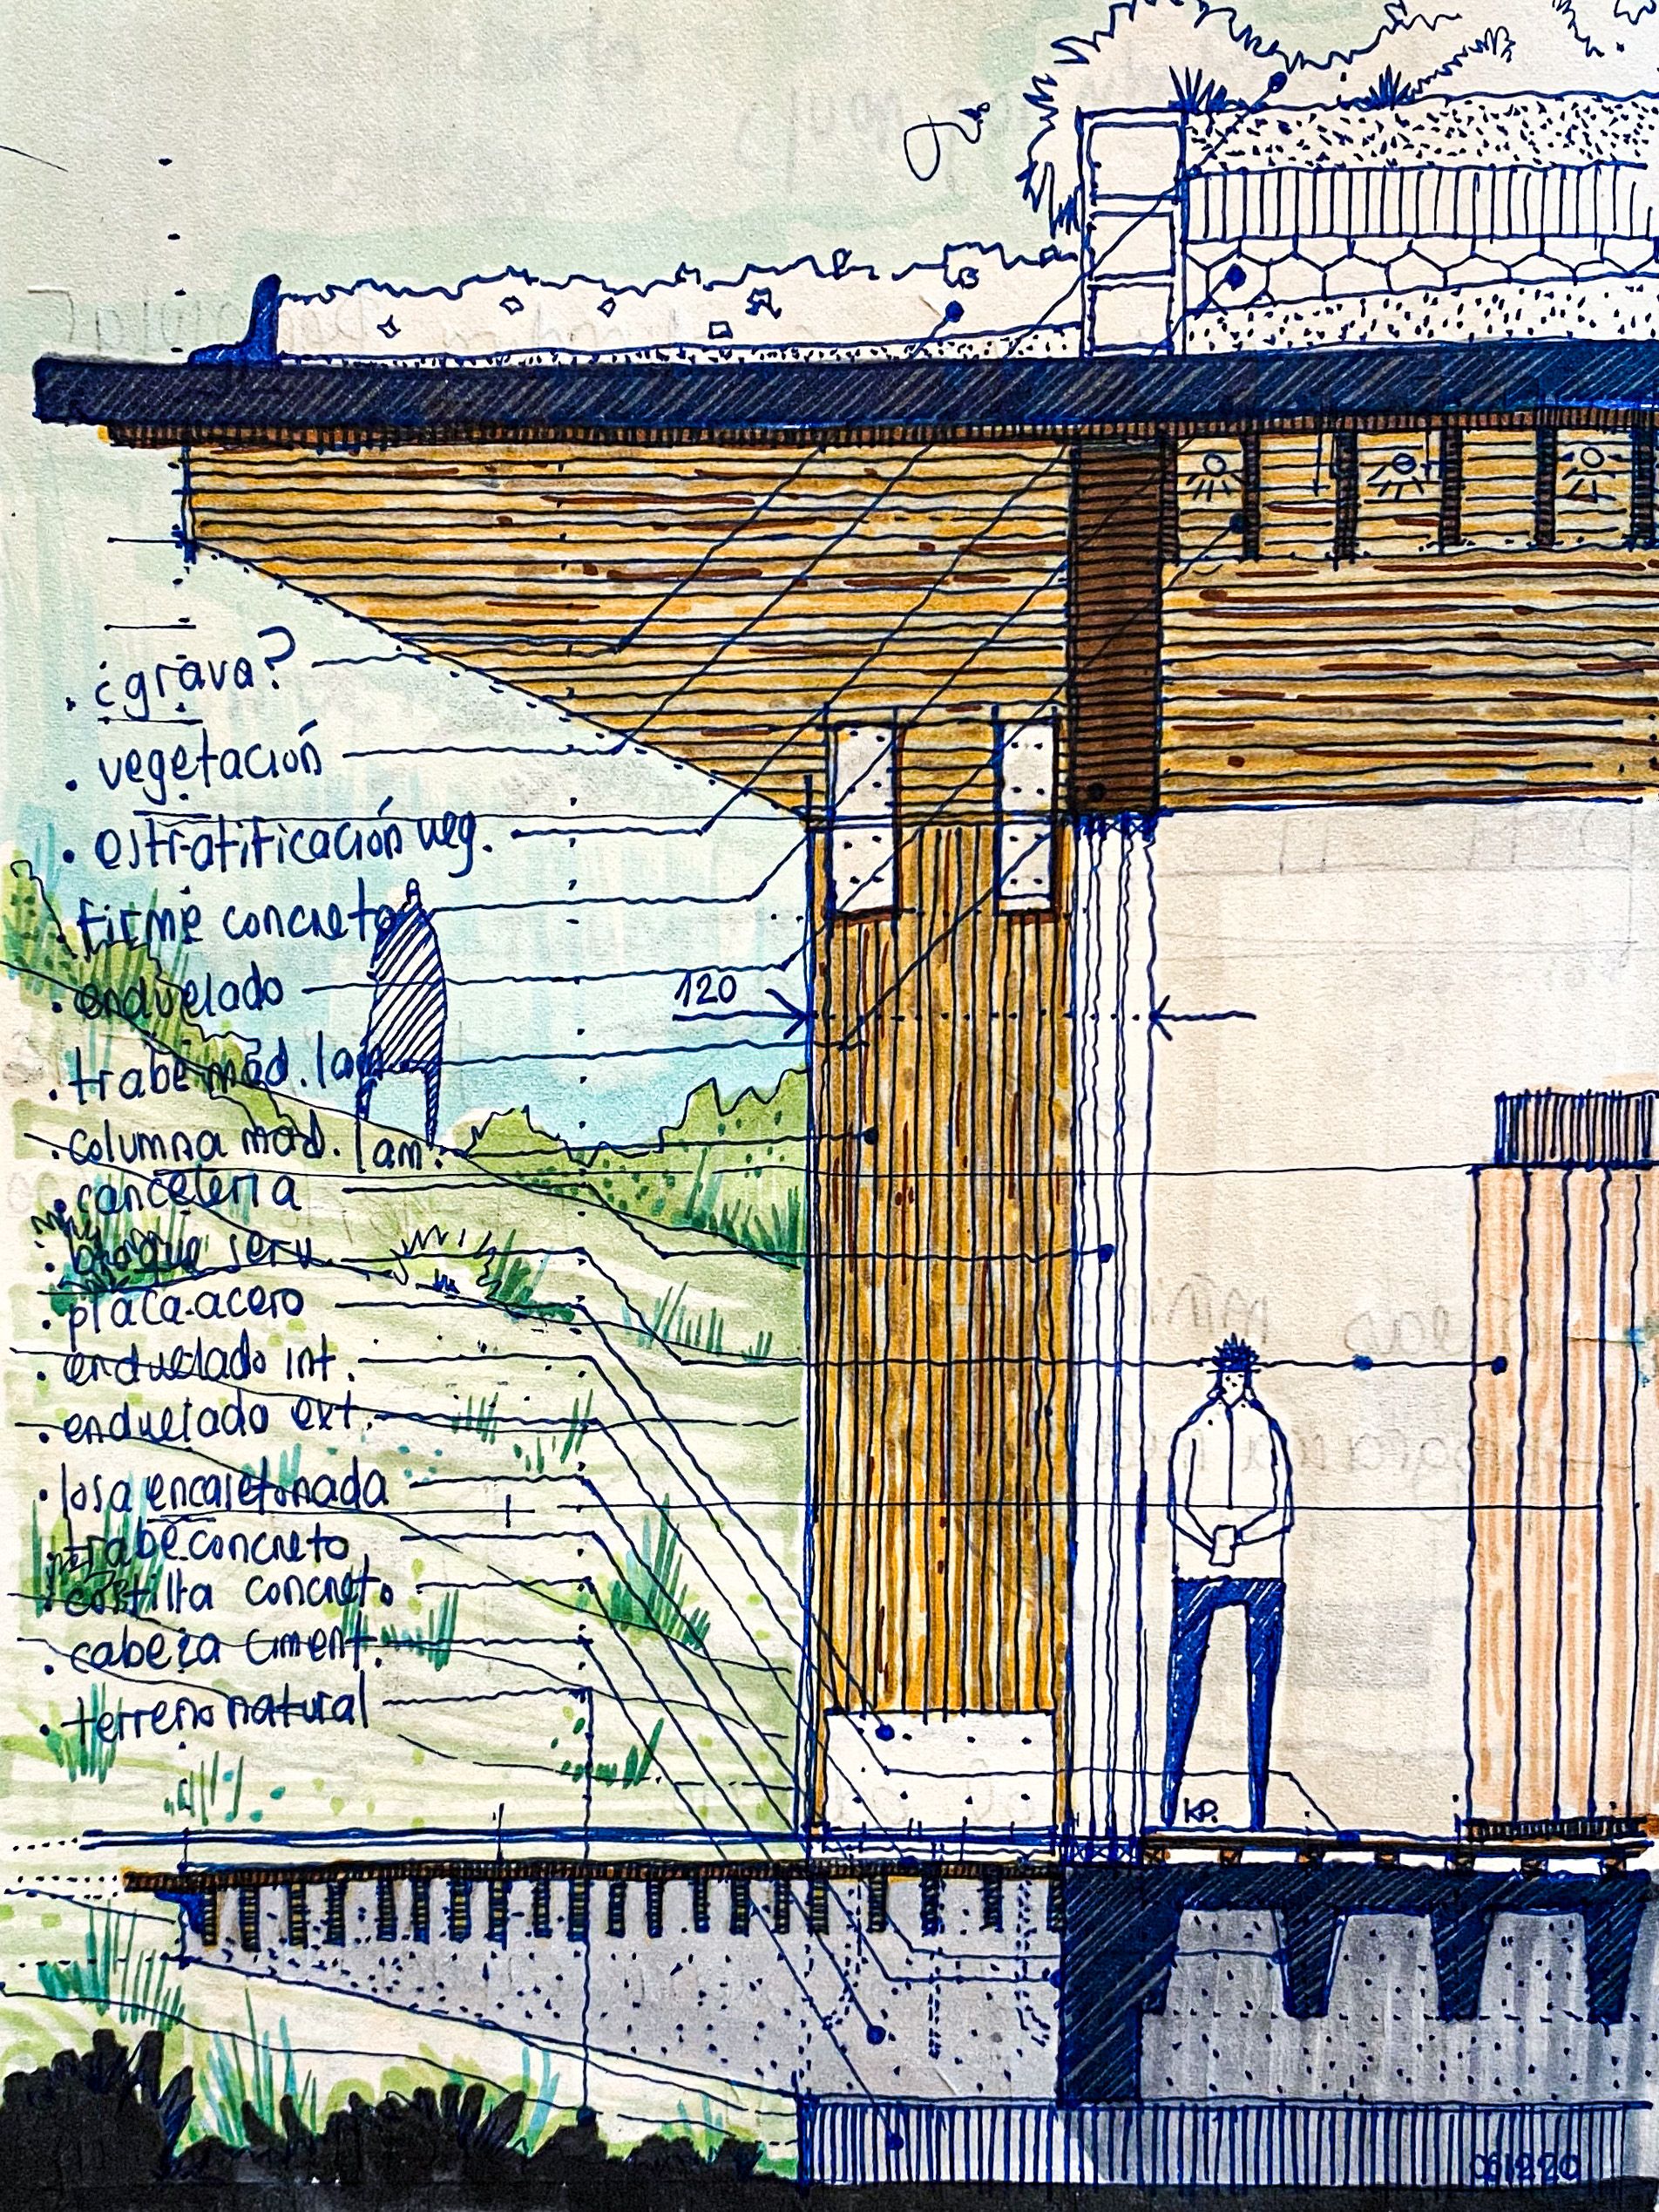 . ¿grava?
. vegetación
. estratificación veg.
. firme concreto
. enduelado
. trabe mad. lam.
. columna mad. lam.
. cancelería
. bloque serv.
. placa acero
. enduelado int.
. enduelado ext.
. losa encasetonada
. trabe concreto
. costilla concreto
. cabeza ciment.
. terreno natural
120
KP.